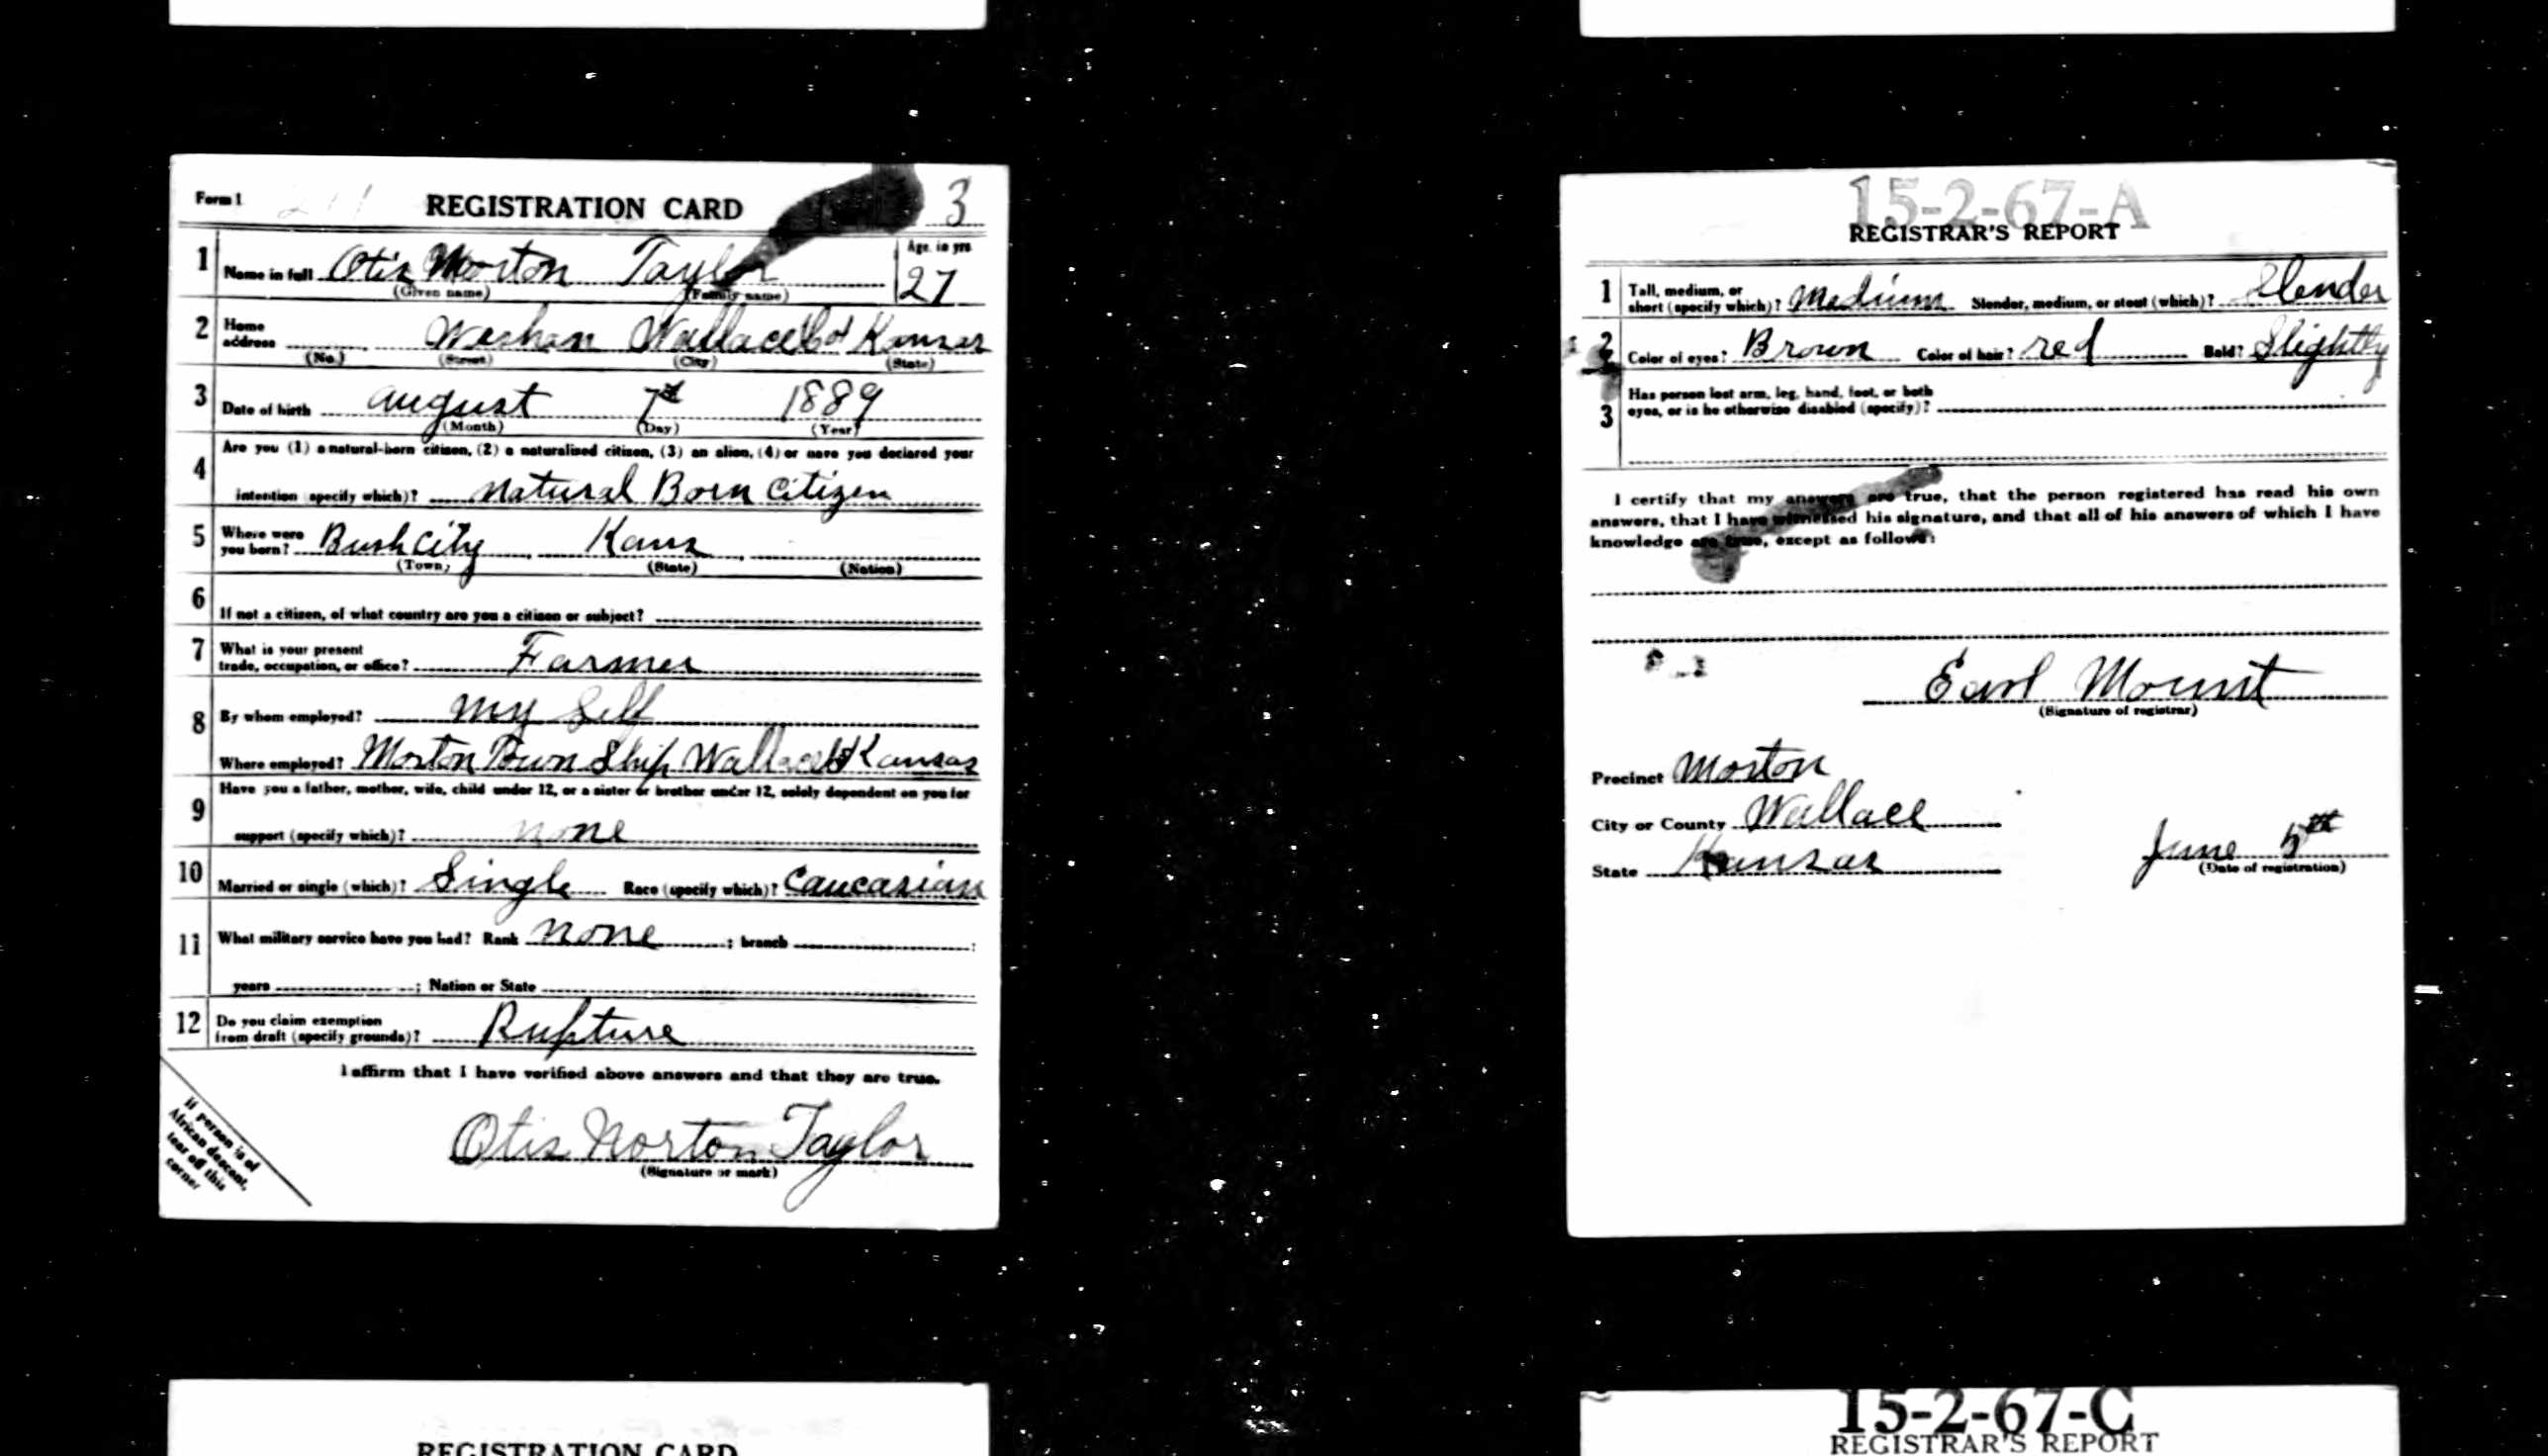 Form 1 REGISTRATION CARD 3
1 Name in full Otis Morton Taylor Age, in yrs 27
(Given name) (Family name)
2 Home address Weskan Wallace Co Kansas
(No.) (Street) (City) (State)
3 Date of birth August 7th 1889
(Month) (Day) (Year)
4 Are you (1) a natural-born citizen, (2) a naturalized citizen, (3) an alien, (4) or have you declared your
intention (specify which)? Natural Born Citizen
5 Where were you born? Bush City Kans
(Town) (State) (Nation)
6 If not a citizen, of what country are you a citizen or subject?
7 What is your present
trade, occupation, or office? Farmer
8 By whom employed? My Self
Where employed? Morton Town Ship Wallace Co Kansas
9 Have you a father, mother, wife, child under 12, or a sister or brother under 12, solely dependent on you for
support (specify which)? none
10 Married or single (which)? Single Race (specify which)? Caucasian
11 What military service have you had? Rank none ; branch ;
years ; Nation or State
12 Do you claim exemption
from draft (specify grounds)? Rupture
I affirm that I have verified above answers and that they are true.
Otis Norton Taylor
(Signature or mark)
If person is of
African descent,
tear off this
corner
REGISTRATION CARD
15-2-67-A
REGISTRAR'S REPORT
1 Tall, medium, or
short (specify which)? Medium Slender, medium, or stout (which)? Slender
2 Color of eyes? Brown Color of hair? red Bald? Slightly
3 Has person lost arm, leg, hand, foot, or both
eyes, or is he otherwise disabled (specify)?
I certify that my answers are true, that the person registered has read his own
answers, that I have witnessed his signature, and that all of his answers of which I have
knowledge are true, except as follows:
Earl Mount
(Signature of registrar)
Precinct Morton
City or County Wallace
State Kansas
June 5th
(Date of registration)
15-2-67-C
REGISTRAR'S REPORT